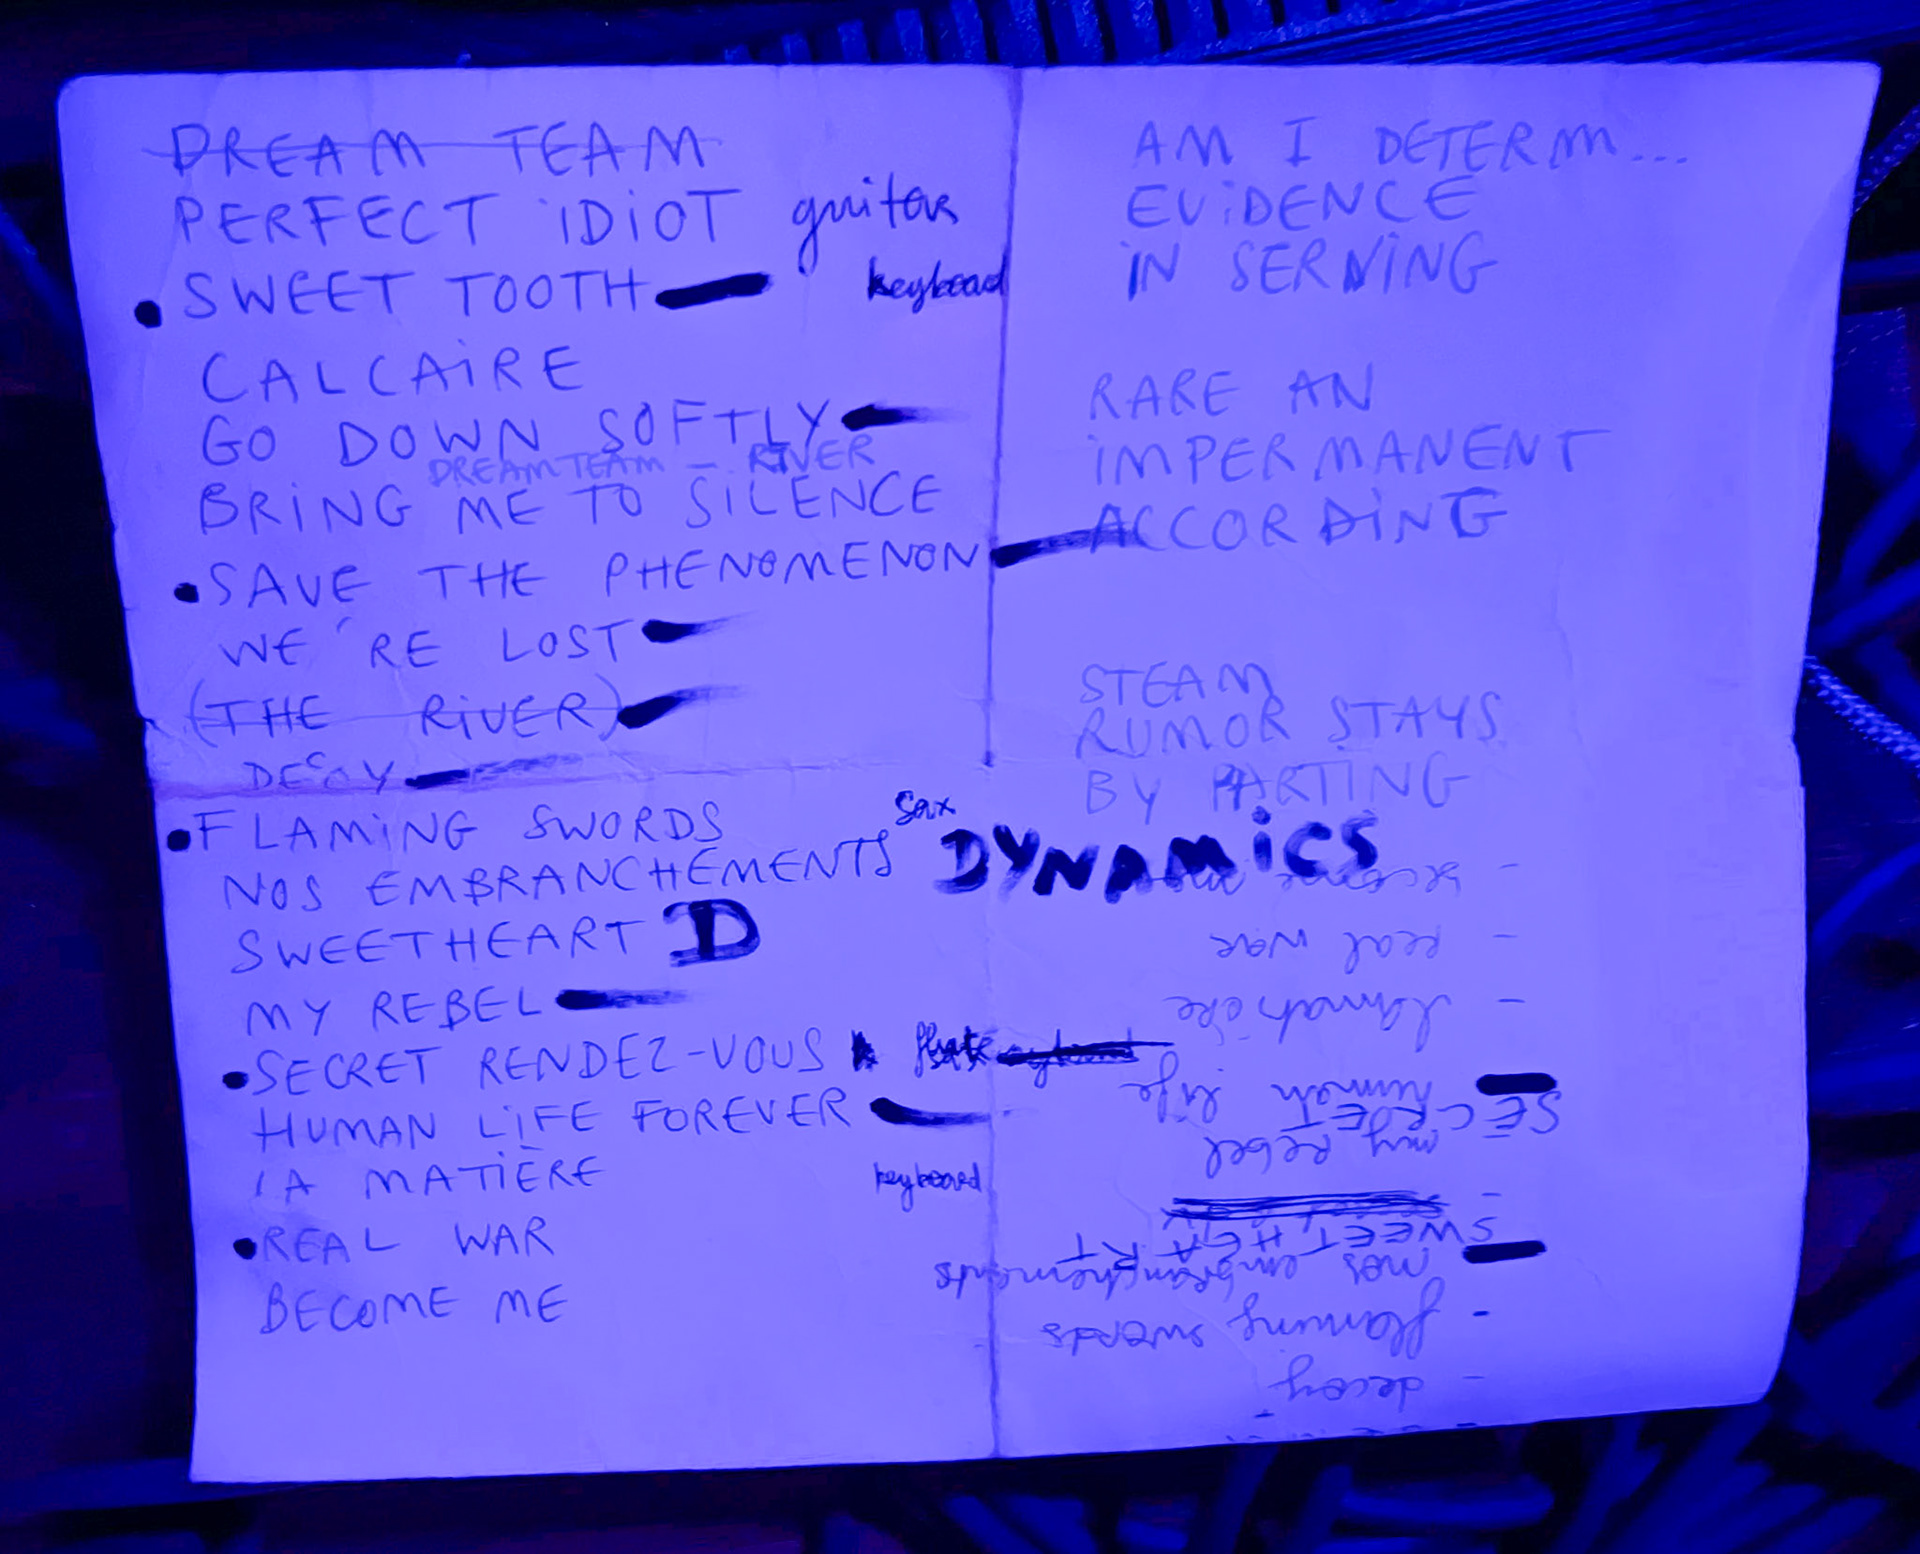 DREAM TEAM
PERFECT IDIOT guitar
• SWEET TOOTH keyboard
CALCAIRE
GO DOWN SOFTLY
DREAM TEAM – RIVER
BRING ME TO SILENCE
• SAVE THE PHENOMENON
WE'RE LOST
(THE RIVER)
DECOY
• FLAMING SWORDS
NOS EMBRANCHEMENTS sax
DYNAMICS
SWEETHEART D
MY REBEL
• SECRET RENDEZ-VOUS flute keyboard
HUMAN LIFE FOREVER
LA MATIÈRE keyboard
• REAL WAR
BECOME ME
AM I DETERM...
EVIDENCE
IN SERVING
RARE AN
IMPERMANENT
ACCORDING
STEAM
RUMOR STAYS
BY PARTING
- decoy
- flaming swords
nos embranchements
SWEETHEART
-
my rebel
SECRET
human life
- la matière
- real war
- become me